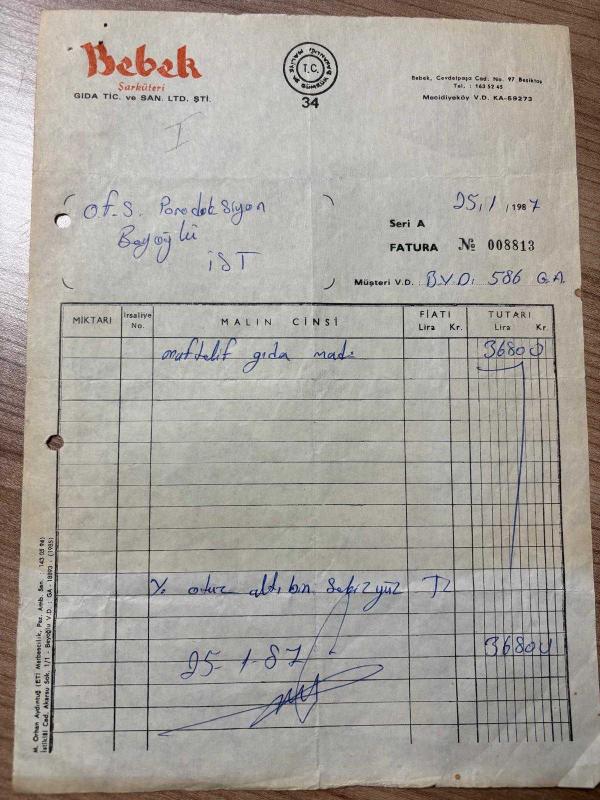 Bebek
Şarküteri
GIDA TİC. ve SAN. LTD. ŞTİ.
T.C.
34
Bebek, Cevdetpaşa Cad. No. 97 Beşiktaş
Tel. : 163 52 45
Mecidiyeköy V.D. KA-59273
I
Of-S. Parodoksiyon
Beyoğlu
İST
25.1/1987
Seri A
FATURA № 008813
Müşteri V.D. : B.V.D. 586 G.A.
MİKTARI
İrsaliye No.
MALIN CİNSİ
FİATI
Lira Kr.
TUTARI
Lira Kr.
muhtelif gıda mad. 36800
Y. otuz altıbin sekizyüz TL
36800
25-1-87
M. Orhan Aydıntuğ (ETİ Matbaacılık, Paz. Amb. San. 143 05 94)
İstiklâl Cad. Akarsu Sok. 1/1 - Beyoğlu V.D. : GA - 18893 - (1985)